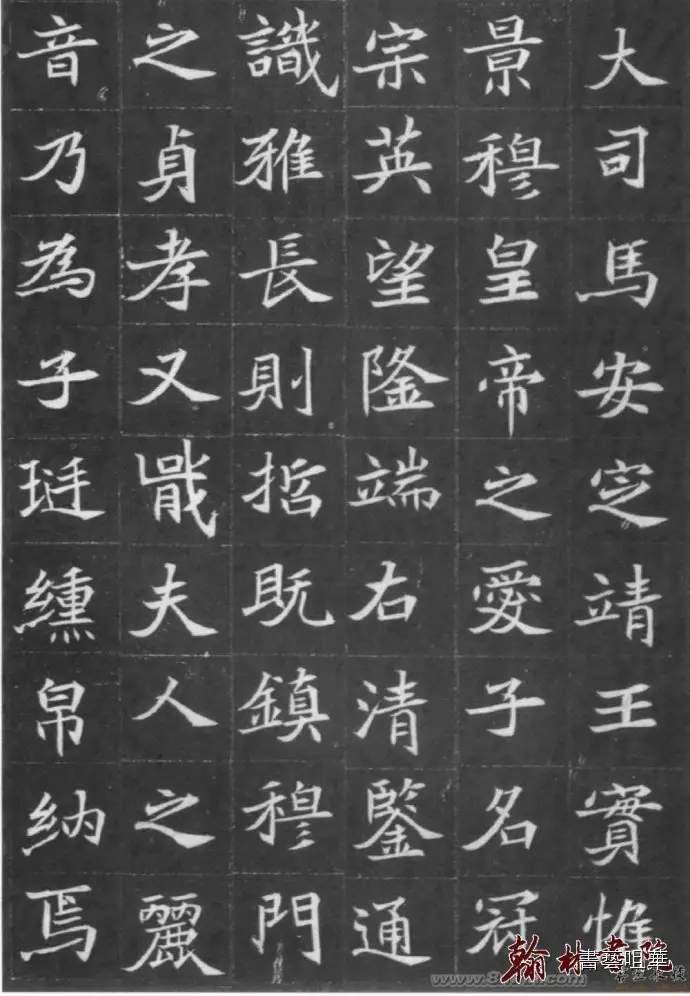 大司馬安定靖王實惟
景穆皇帝之愛子名冠
宗英望隆端右清鑒通
識雅長則哲既鎮穆門
之貞孝又夫人之麗
音乃為子珽纁帛納焉
翰林書院
書藝咀華